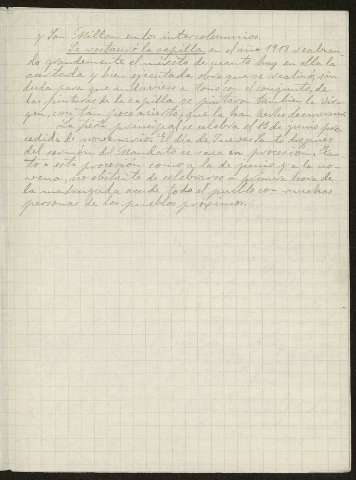 y San Millan en los intercolumnios.
Se restauró la capilla en el año 1918 realzan-
do grandemente el mérito de cuanto hay en ella la
acertada y bien ejecutada obra que se realizó, sin
duda para que no hubiese el conjunto, de
las pinturas de la capilla, se pintaron tambien la Vir-
gen, con tan poco acierto que la han
La fiesta principal se celebra el 13 de junio pre-
cedida de novenario. El día de Jueves Santo despues
del sermón del Mandato se saca en procesión. Tan-
to a esta procesión como a la de junio y a la no-
vena, no obstante de celebrarse a primera hora de
la madrugada acude todo el pueblo con muchas
personas de los pueblos proximos.